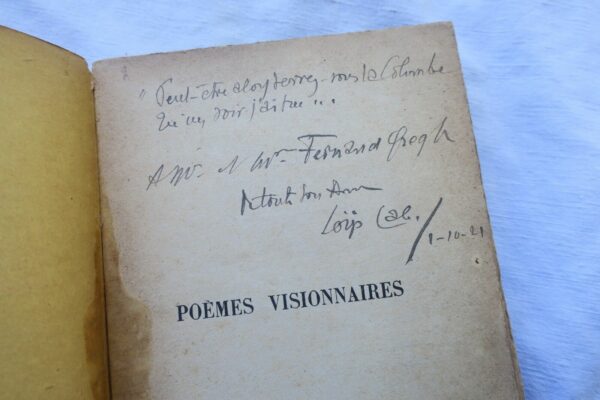 "Peut-être alors verrez-vous la Colombe
Qu'un soir j'ai tué...
A Mr. & Me. Fernand Gregh
Loïs Cab. / 1-10-21
POÈMES VISIONNAIRES